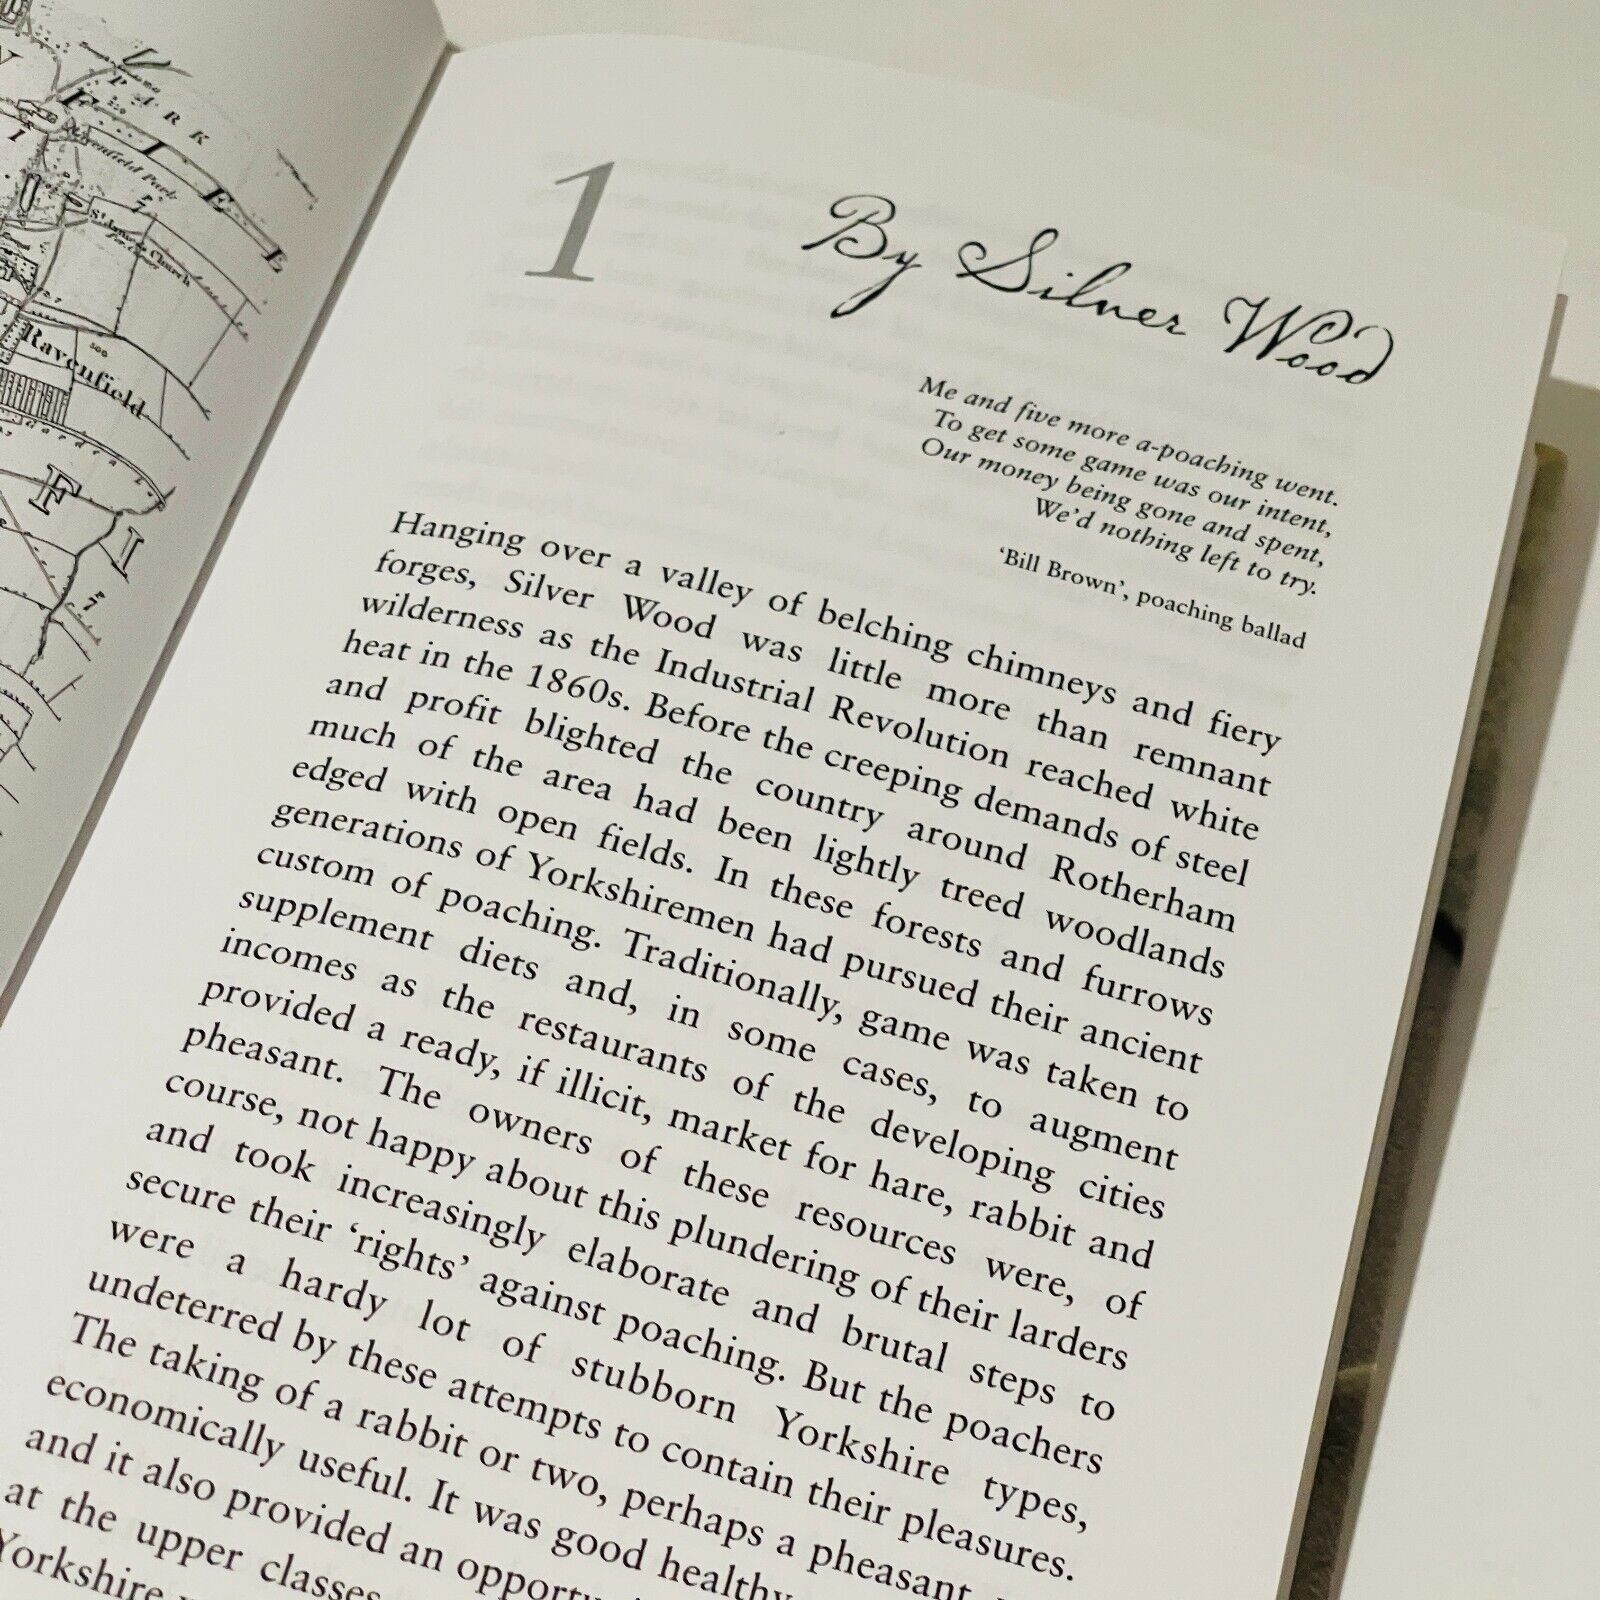 PARK
Ravenfield Park
St. James's Church
Ravenfield
1
By Silver Wood
Me and five more a-poaching went.
To get some game was our intent,
Our money being gone and spent,
We'd nothing left to try.
'Bill Brown', poaching ballad
Hanging over a valley of belching chimneys and fiery
forges, Silver Wood was little more than remnant
wilderness as the Industrial Revolution reached white
heat in the 1860s. Before the creeping demands of steel
and profit blighted the country around Rotherham
much of the area had been lightly treed woodlands
edged with open fields. In these forests and furrows
generations of Yorkshiremen had pursued their ancient
custom of poaching. Traditionally, game was taken to
supplement diets and, in some cases, to augment
incomes as the restaurants of the developing cities
provided a ready, if illicit, market for hare, rabbit and
pheasant. The owners of these resources were, of
course, not happy about this plundering of their larders
and took increasingly elaborate and brutal steps to
secure their 'rights' against poaching. But the poachers
were a hardy lot of stubborn Yorkshire types,
undeterred by these attempts to contain their pleasures.
The taking of a rabbit or two, perhaps a pheasant,
economically useful. It was good healthy
and it also provided an
at the upper classes
Yorkshire